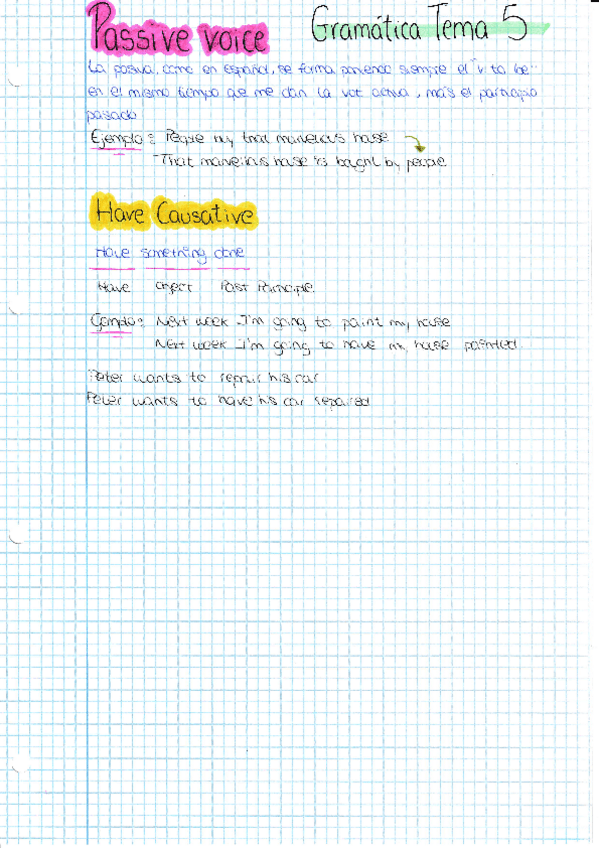 Passive voice Gramática Tema 5
La pasiva, como en español, se forma poniendo siempre el "v to be"
en el mismo tiempo que me dan la voz activa, más el participio
pasado
Ejemplo: People buy that marvelous house
- That marvelous house is bought by people
Have Causative
Have something done
Have object Past Participle.
Ejemplo: Next week I'm going to paint my house
Next week I'm going to have my house painted.
Peter wants to repair his car
Peter wants to have his car repaired